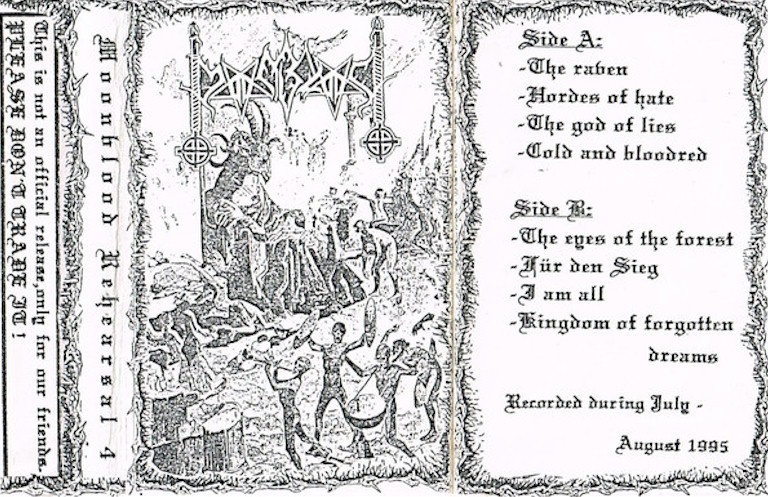 This is not an official release, only for our friends.
PLEASE DONT TRADE IT !
Moonblood Rehearsal 4
Side A:
-The raven
-Hordes of hate
-The god of lies
-Cold and bloodred
Side B:
-The eyes of the forest
-Für den Sieg
-I am all
-Kingdom of forgotten
dreams
Recorded during July -
August 1995